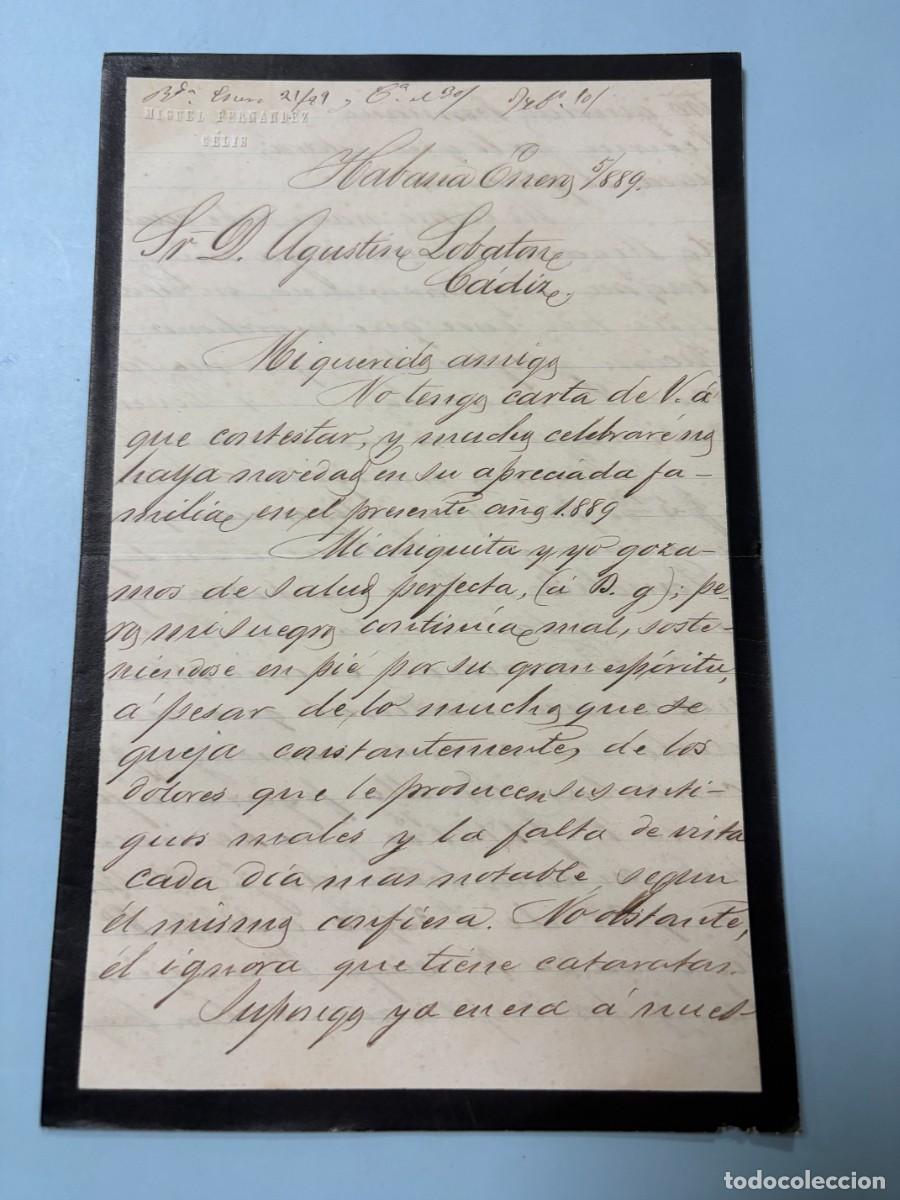 Enero 21/89
MIGUEL FERNANDEZ
CÉLIS
Habana Enero 5/889.
Sr. D. Agustin Lobaton
Cádiz.
Mi querido amigo
No tengo carta de V. á
que contestar, y mucho celebraré no
haya novedad en su apreciada fa-
milia, en el presente año 1.889
Mi chiquita y yo goza-
mos de salud perfecta, (á D. g); pe-
ro mi suegro continúa mal, soste-
niéndose en pié por su gran espíritu,
á pesar de lo mucho que se
queja constantemente, de los
dolores que le producen sus anti-
guos males y la falta de vista
cada día mas notable segun
él mismo confiesa. No obstante,
él ignora que tiene cataratas.
Supongo ya en esa á nues-
todocoleccion
todocoleccion.net